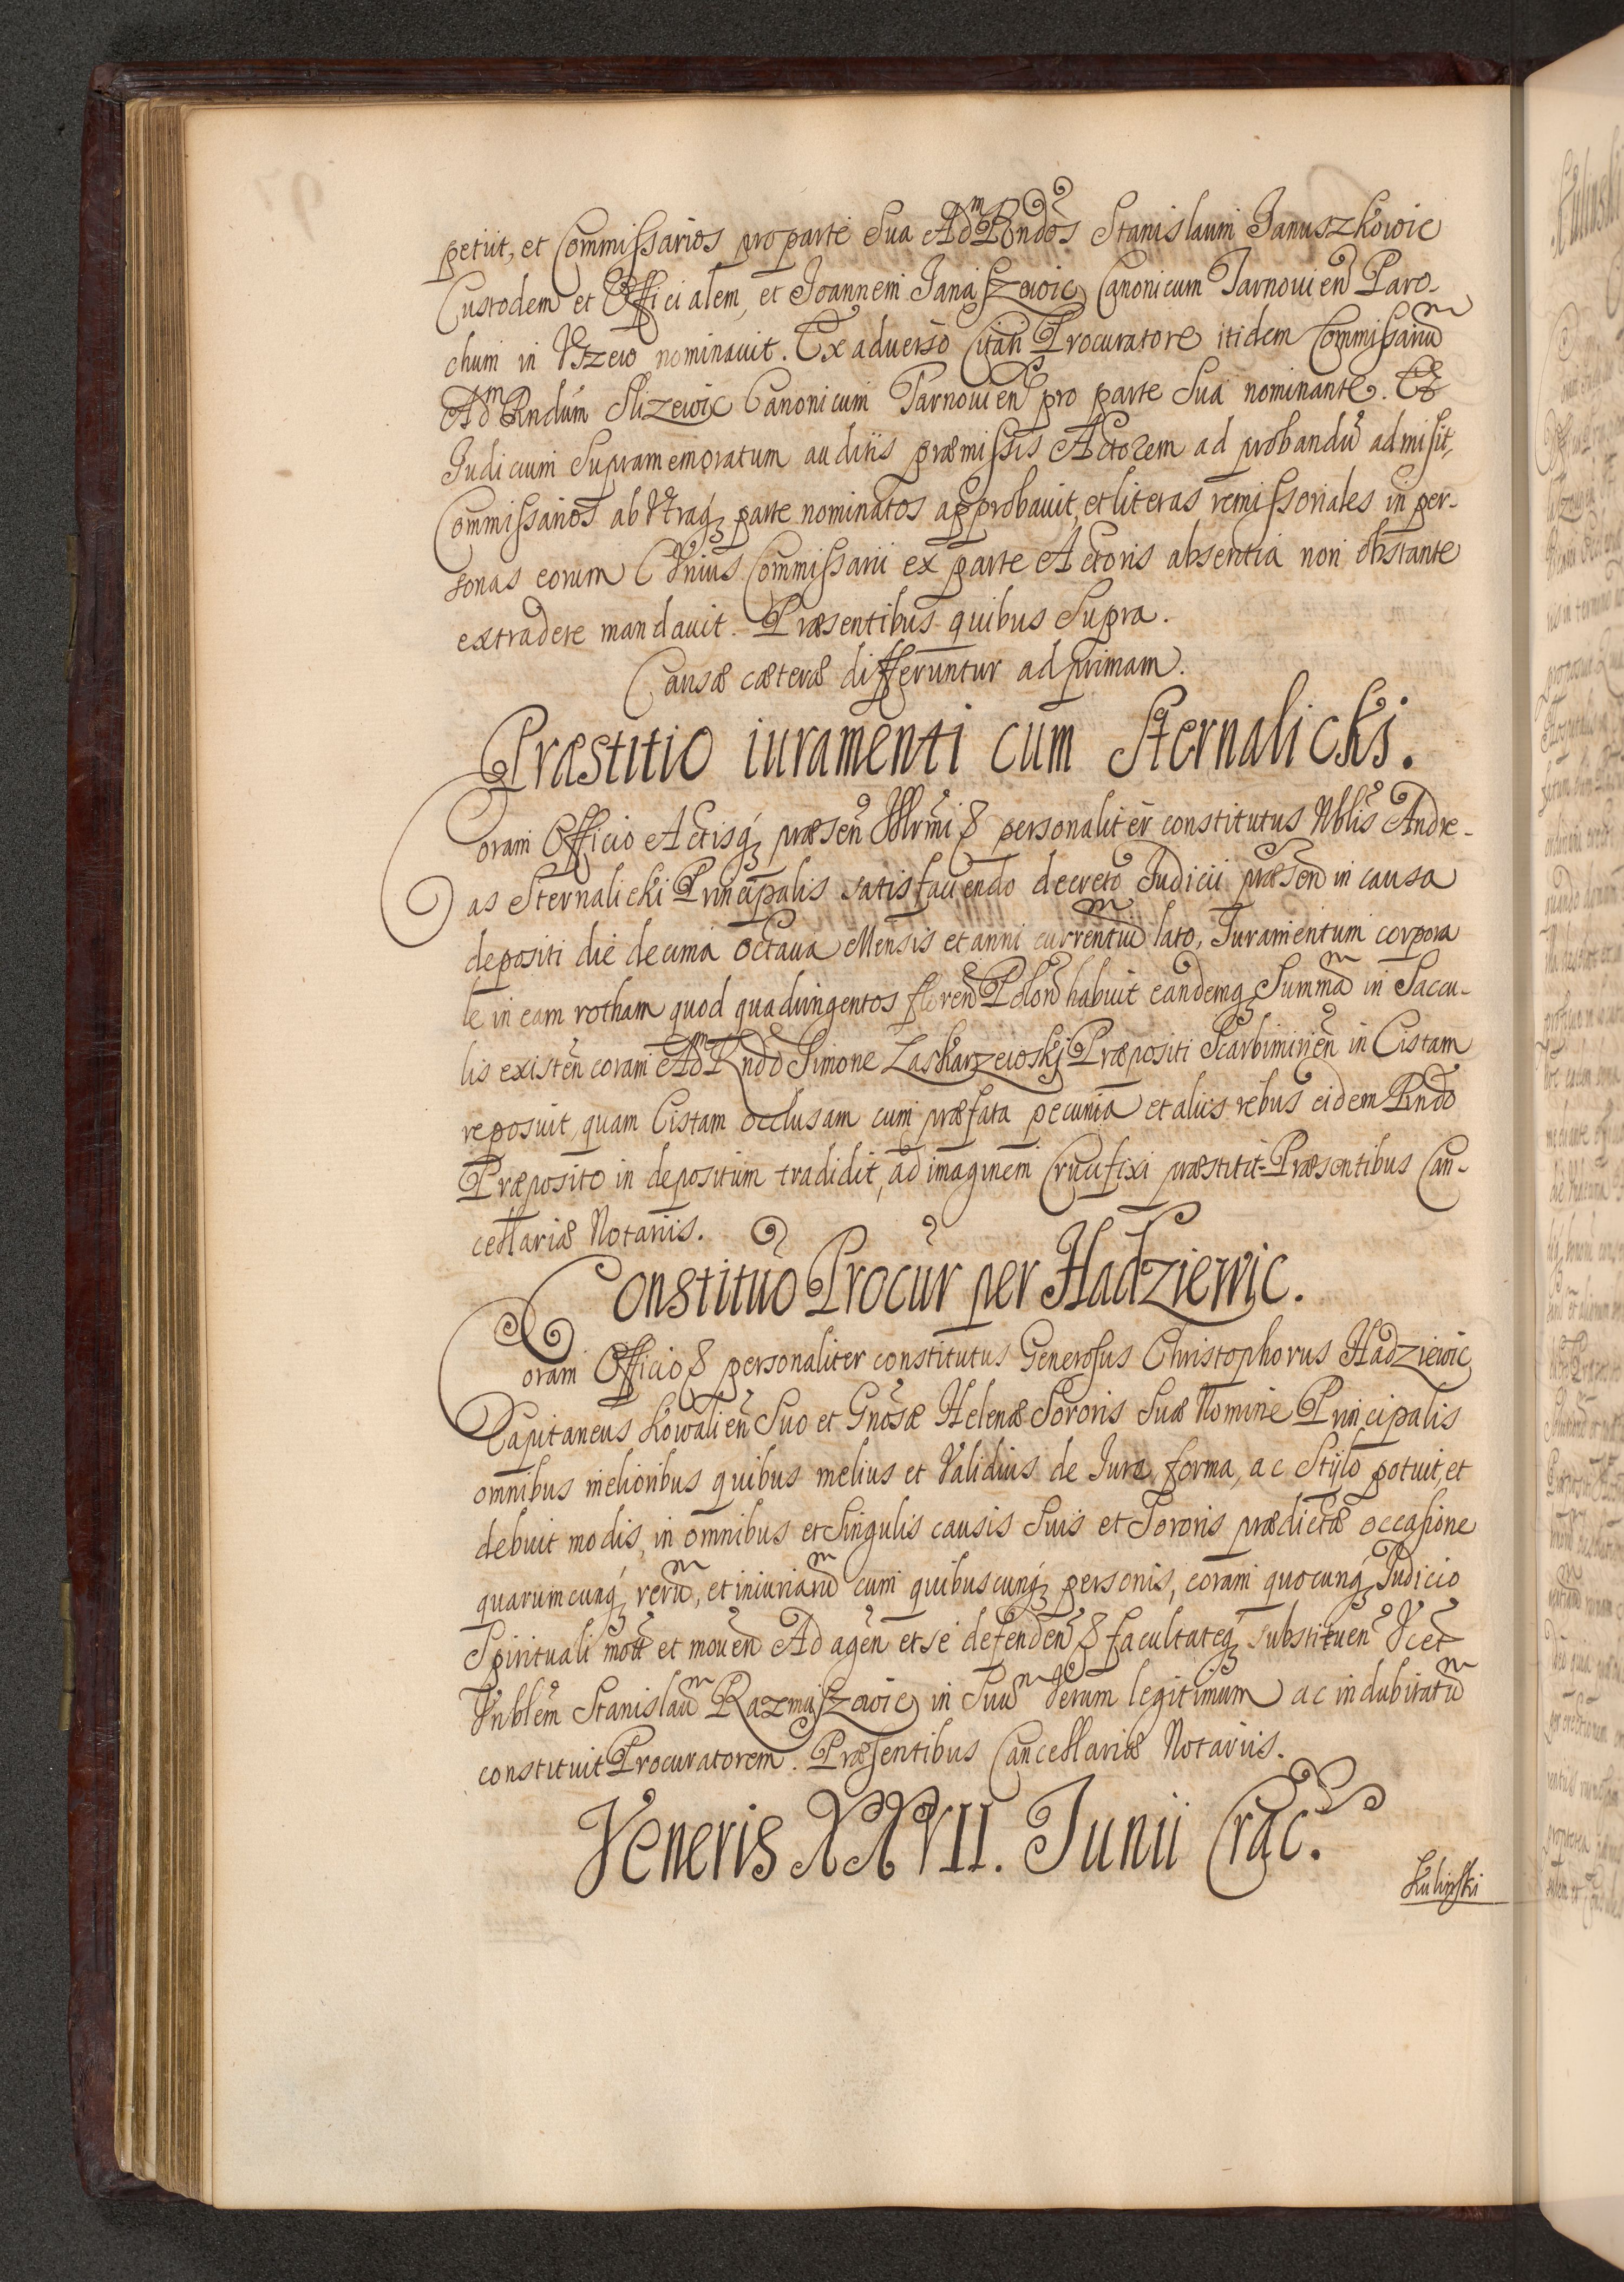 petiit, et Commissarios pro parte Sua Adᵐ Rndos Stanislaum Januszkowic
Custodem et Officialem, et Joannem Janaszewic Canonicum Tarnouien Paro-
chum in Vszew nominauit. Ex aduerso Citati Procuratore itidem Commissariuᵐ
Adᵐ Rndum Slizewic Canonicum Tarnouien pro parte Sua nominante. Et
Judicium Supramemoratum audiis præmissis Actorem ad probandũ admisit,
Commissarios ab Vtraq₃ parte nominatos approbauit, et literas remissoriales in per-
sonas eorum Vnius Commissarii ex parte Actoris absentia non obstante
extradere mandauit. Præsentibus quibus Supra.
Causæ cæteræ differuntur ad primam.
Præstitio iuramenti cum Sternalicki.
Coram Officio Actisq₃ præsen Illrmi & personaliter constitutus Nblis Andre-
as Sternalicki Principalis satisfaciendo decreto Judicii præsen in causa
depositi die decima octaua Mensis et anni currentiuᵐ lato, Juramentum corpora
le in eam rotham quod quadringentos floren Polon habuit eandemq₃ Summaᵐ in Saccu-
lis existen coram Adᵐ Rndo Simone Laskarzewski Præpositi Scarbimirien in Cistam
reposuit, quam Cistam occlusam cum præfata pecunia et aliis rebus eidem Rndo
Præposito in depositum tradidit, ad imaginem Crucifixi præstitit. Præsentibus Can-
cellariæ Notariis.
Constituo Procur per Hadziewic.
Coram Officio & personaliter constitutus Generosus Christophorus Hadziewic
Capitaneus Kowalien Suo et Gnosæ Helenæ Sororis Suæ Nomine Principalis
omnibus melioribus quibus melius et Validius de Jure, forma, ac Stylo potuit, et
debuit modis, in omnibus et Singulis causis Suis et Sororis prædictæ occasione
quarumcunq₃ reruᵐ, et iniuriaruᵐ cum quibuscunq₃ personis, coram quocunq₃ Judicio
Spirituali mott et mouen Ad agen et se defenden & facultateq₃ substituen Vcet
Vnblem Stanislauᵐ Razmuszewic in Suuᵐ Verum legitimum ac indubitatuᵐ
constituit Procuratorem. Præsentibus Cancellariæ Notariis.
Veneris XXVII. Junii Crac.
Kulinski